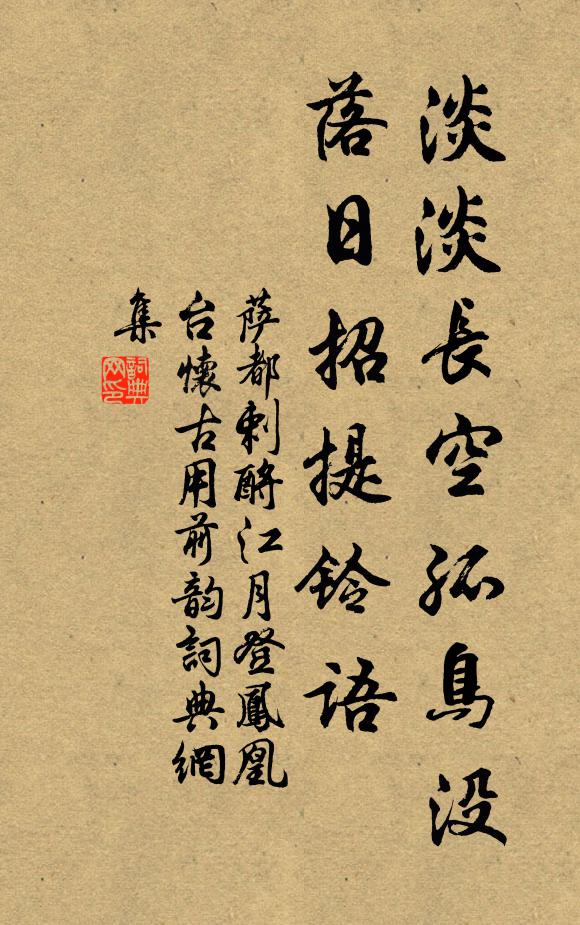 淡淡長空孤鳥没
落日招提鈴語
薩都剌酹江月登鳳凰
台懷古用前韵詞典網
集
詞典
网印